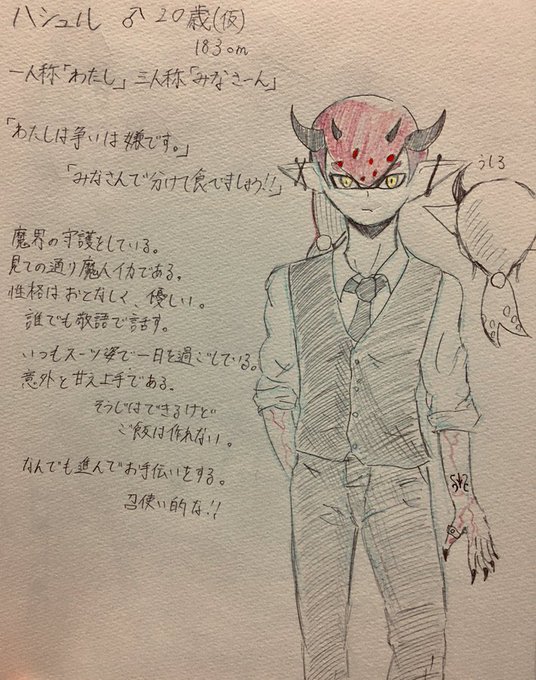 ハシュル ♂ 20歳(仮)
183cm
一人称「わたし」 三人称「みなさーん」
「わたしは争いは嫌です。」
「みなさんで分けて食べましょう!!」
うしろ
魔界の守護をしている。
見ての通り魔人イカである。
性格はおとなしく、優しい。
誰でも敬語で話す。
いつもスーツ姿で一日を過ごしている。
意外と甘え上手である。
そうじはできるけど
ご飯は作れない。
なんでも進んでお手伝いをする。
召使い的な!!